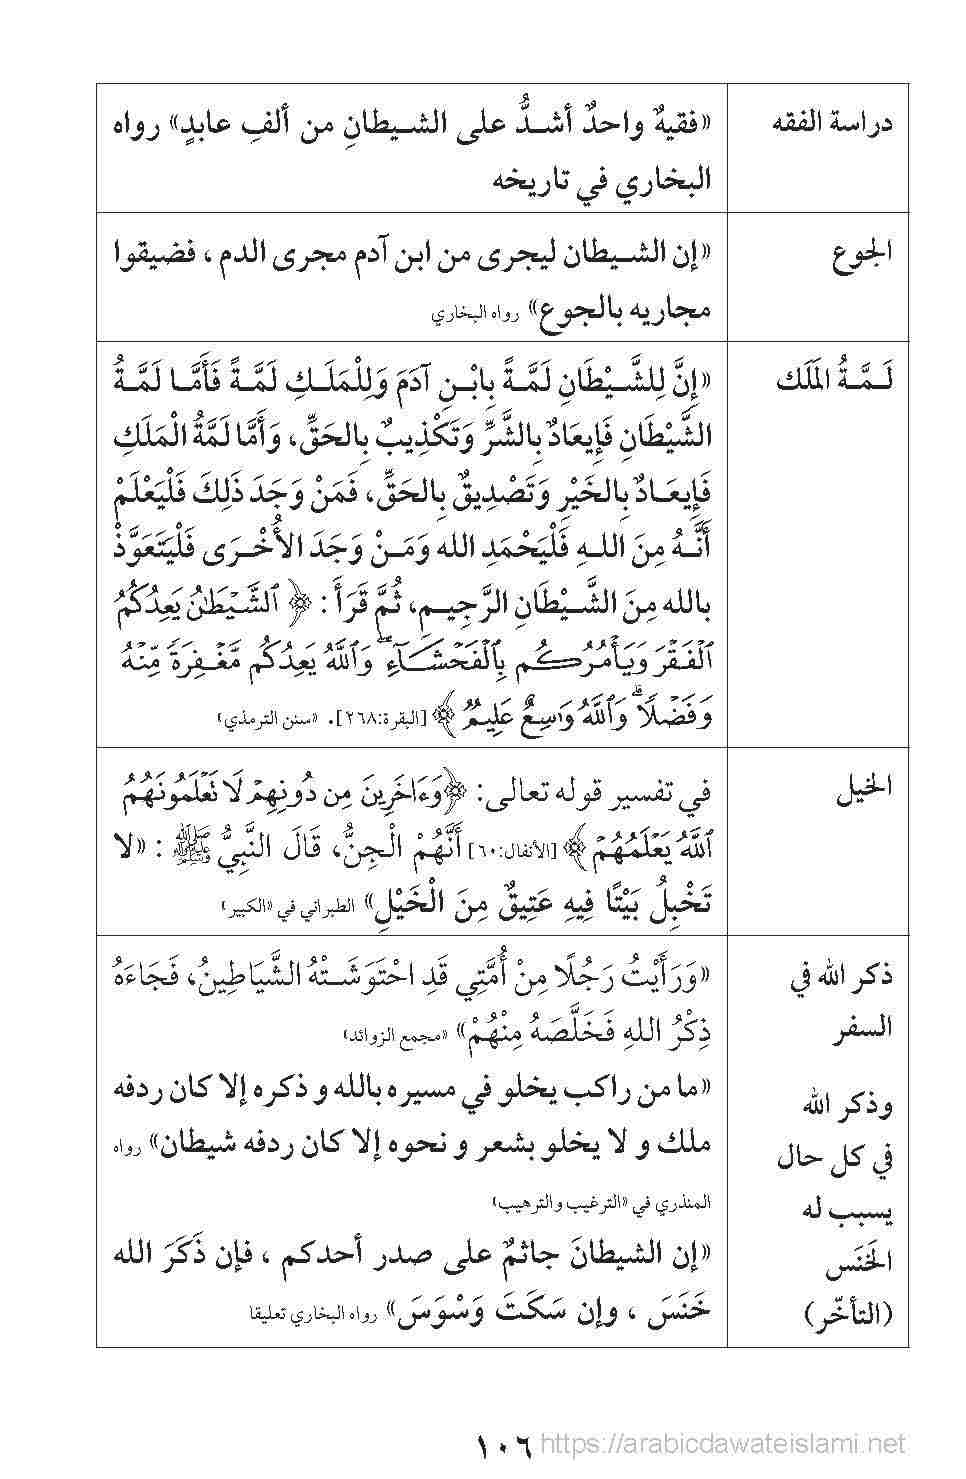 دراسة الفقه
«فقيهٌ واحدٌ أشـدُّ على الشـيطانِ من ألفِ عابدٍ» رواه
البخاري في تاريخه
الجوع
«إن الشـيطان ليجرى من ابن آدم مجرى الدم ، فضيقوا
مجاريه بالجوع» رواه البخاري
لَـمَّـةُ المَلَك
«إِنَّ لِلشَّـيْطَانِ لَمَّةً بِابْـنِ آدَمَ وَلِلْمَلَـكِ لَمَّـةً فَأَمَّـا لَمَّـةُ
الشَّيْطَانِ فَإِيعَادٌ بِالشَّرِّ وَتَكْذِيبٌ بِالحَقِّ، وَأَمَّا لَمَّةُ الْمَلَكِ
فَإِيعَـادٌ بِالخَيْرِ وَتَصْدِيقٌ بِالحَقِّ، فَمَنْ وَجَدَ ذَلِكَ فَلْيَعْلَمْ
أَنَّـهُ مِنَ اللـهِ فَلْيَحْمَدِ الله وَمَـنْ وَجَدَ الأُخْـرَى فَلْيَتَعَوَّذْ
بالله مِنَ الشَّـيْطَانِ الرَّجِيـمِ، ثُمَّ قَرَأَ : ﴿ ٱلشَّيۡطَٰنُ يَعِدُكُمُ
ٱلۡفَقۡرَ وَيَأۡمُرُكُم بِٱلۡفَحۡشَآءِۖ وَٱللَّهُ يَعِدُكُم مَّغۡفِرَةٗ مِّنۡهُ
وَفَضۡلٗاۗ وَٱللَّهُ وَٰسِعٌ عَلِيمٞ ﴾ [البقرة:٢٦٨]. «سنن الترمذي»
الخيل
في تفسير قوله تعالى: ﴿وَءَاخَرِينَ مِن دُونِهِمۡ لَا تَعۡلَمُونَهُمُ
ٱللَّهُ يَعۡلَمُهُمۡ﴾ [الأنفال:٦٠] أَنَّهُمْ الْجِنُّ، قَالَ النَّبِيُّ ﷺ : «لا
تَخْبِلُ بَيْتًا فِيهِ عَتِيقٌ مِنَ الْخَيْلِ» الطبراني في «الكبير»
ذكر الله في
السفر
وذكر الله
في كل حال
يسبب له
الخَنَس
(التأخّر)
«وَرَأَيْتُ رَجُلًا مِنْ أُمَّتِي قَدِ احْتَوَشَـتْهُ الشَّيَاطِينُ، فَجَاءَهُ
ذِكْرُ اللهِ فَخَلَّصَهُ مِنْهُمْ» «مجمع الزوائد»
«ما من راكب يخلو في مسيره بالله و ذكره إلا كان ردفه
ملك و لا يخلو بشعر و نحوه إلا كان ردفه شيطان» رواه
المنذري في «الترغيب والترهيب»
«إن الشيطانَ جاثمٌ على صدر أحدكم ، فإن ذَكَرَ الله
خَنَسَ ، وإن سَكَتَ وَسْوَسَ» رواه البخاري تعليقا
١٠٦
https://arabicdawateislami.net